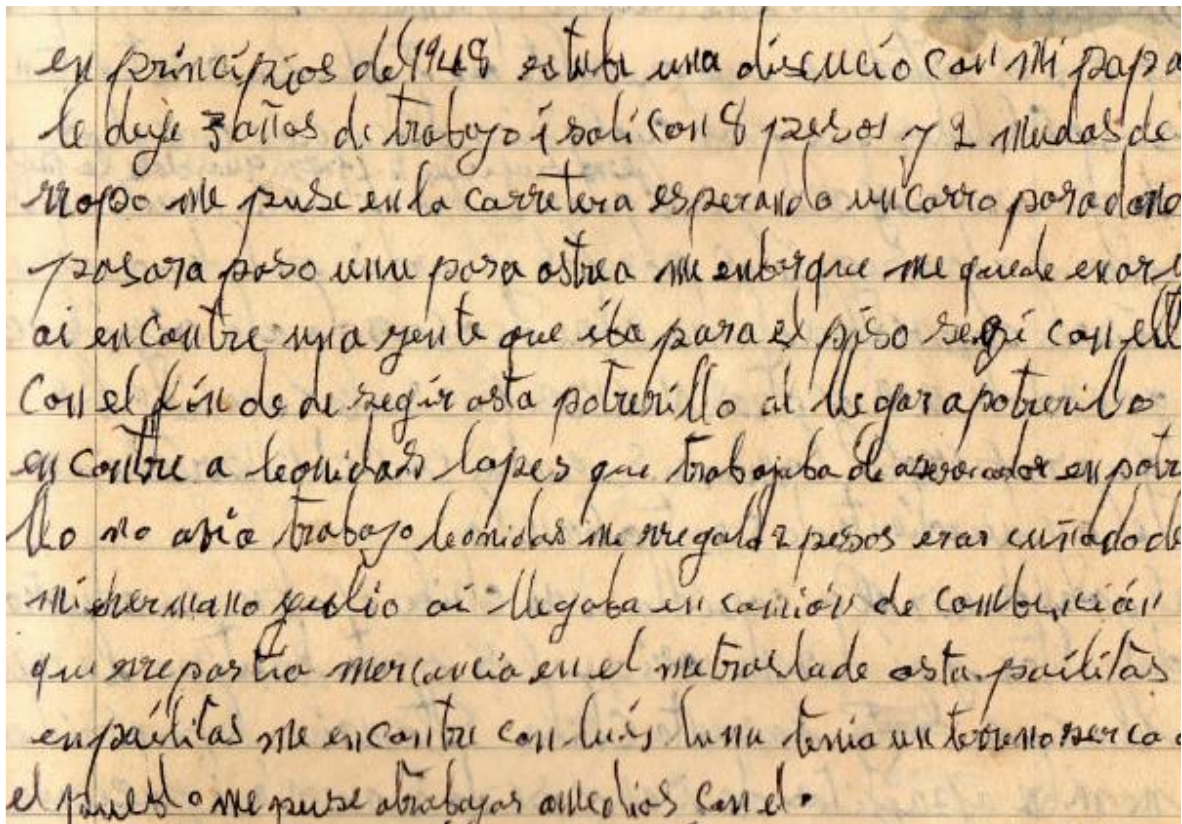 en principios de 1948 estube una discucio con mi papa
le deje 3 años de trabajo i sali con 8 pesos y 2 mudas de
rropo me puse en la carretera esperando un carro para dond
pasara paso unu para astrea me enbarque me quede en
ai en contre una gente que iba para el piso segi con ell
con el fin de de segir asta potrerillo al llegar a potrerillo
en contre a leonidas lopes que trabajaba de aserrador en potr
llo no abia trabajo leonidas me rregalo 2 pesos erar cuñado de
mi hermano julio ai llegaba en camión de combución
que rrepartia mercancia en el me traslade asta pailitas
en pailitas me en contre con luis luna tenia un terreno serca
el pueblo me puse atrabajar amedios con el.